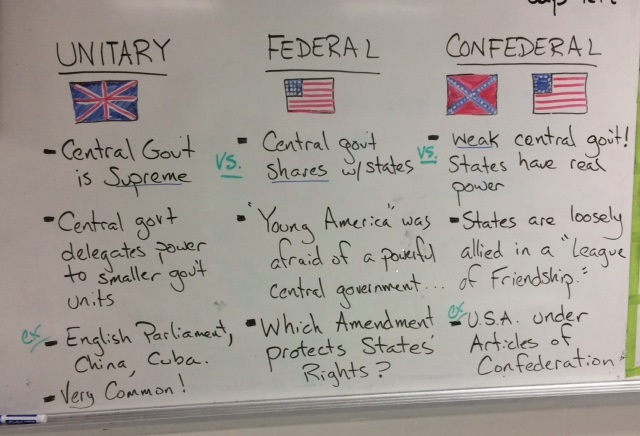 days left
UNITARY
- Central Gov't
is Supreme
- Central govt
delegates power
to smaller gov't
units
ex - English Parliament,
China, Cuba.
- Very Common!
vs.
FEDERAL
- Central gov't
shares w/states
- "Young America" was
afraid of a powerful
central government...
- Which Amendment
protects States'
Rights?
vs.
CONFEDERAL
- weak central gov't!
States have real
power
- States are loosely
allied in a "league
of Friendship."
ex - U.S.A. under
Articles of
Confederation